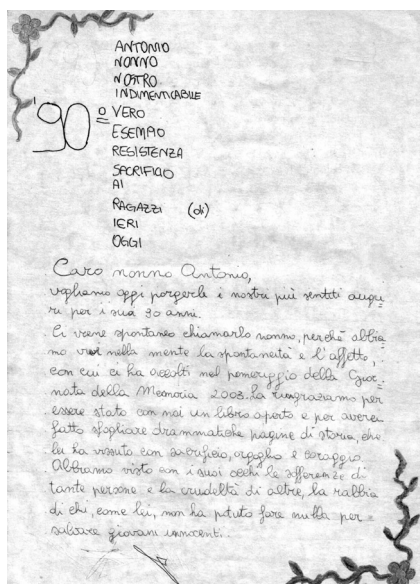 ANTONIO
NONNO
NOSTRO
INDIMENTICABILE
'90º VERO
ESEMPIO
RESISTENZA
SACRIFICIO
AI
RAGAZZI (di)
IERI
OGGI
Caro nonno Antonio,
vogliamo oggi porgerle i nostri più sentiti augu-
ri per i suoi 90 anni.
Ci viene spontaneo chiamarlo nonno, perché abbia-
mo vivi nella mente la spontaneità e l'affetto,
con cui ci ha accolti nel pomeriggio della Gior-
nata della Memoria 2003. La ringraziamo per
essere stato con noi un libro aperto e per averci
fatto sfogliare drammatiche pagine di storia, che
lei ha vissuto con sacrificio, orgoglio e coraggio.
Abbiamo visto con i suoi occhi le sofferenze di
tante persone e la crudeltà di altre, la rabbia
di chi, come lei, non ha potuto fare nulla per
salvare giovani innocenti.